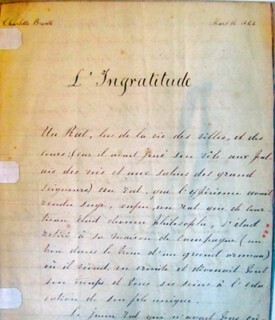 Charlotte Brontë
L'Ingratitude
Un Rat, las de la vie des villes, et des
cours (car il avait joué son rôle aux pal-
ais des rois et aux salons des grand
seigneurs) un rat, que l'expérience avait
rendu sage, enfin, un rat qui de cour-
tisan était devenu philosophe, s'était
retiré à sa maison de campagne (un
trou dans le tronc d'un grand ormeau)
où il vivait en ermite et dévouait tout
son temps et tous ses soins à l'édu-
cation de son fils unique.
Le jeune rat qui n'avait